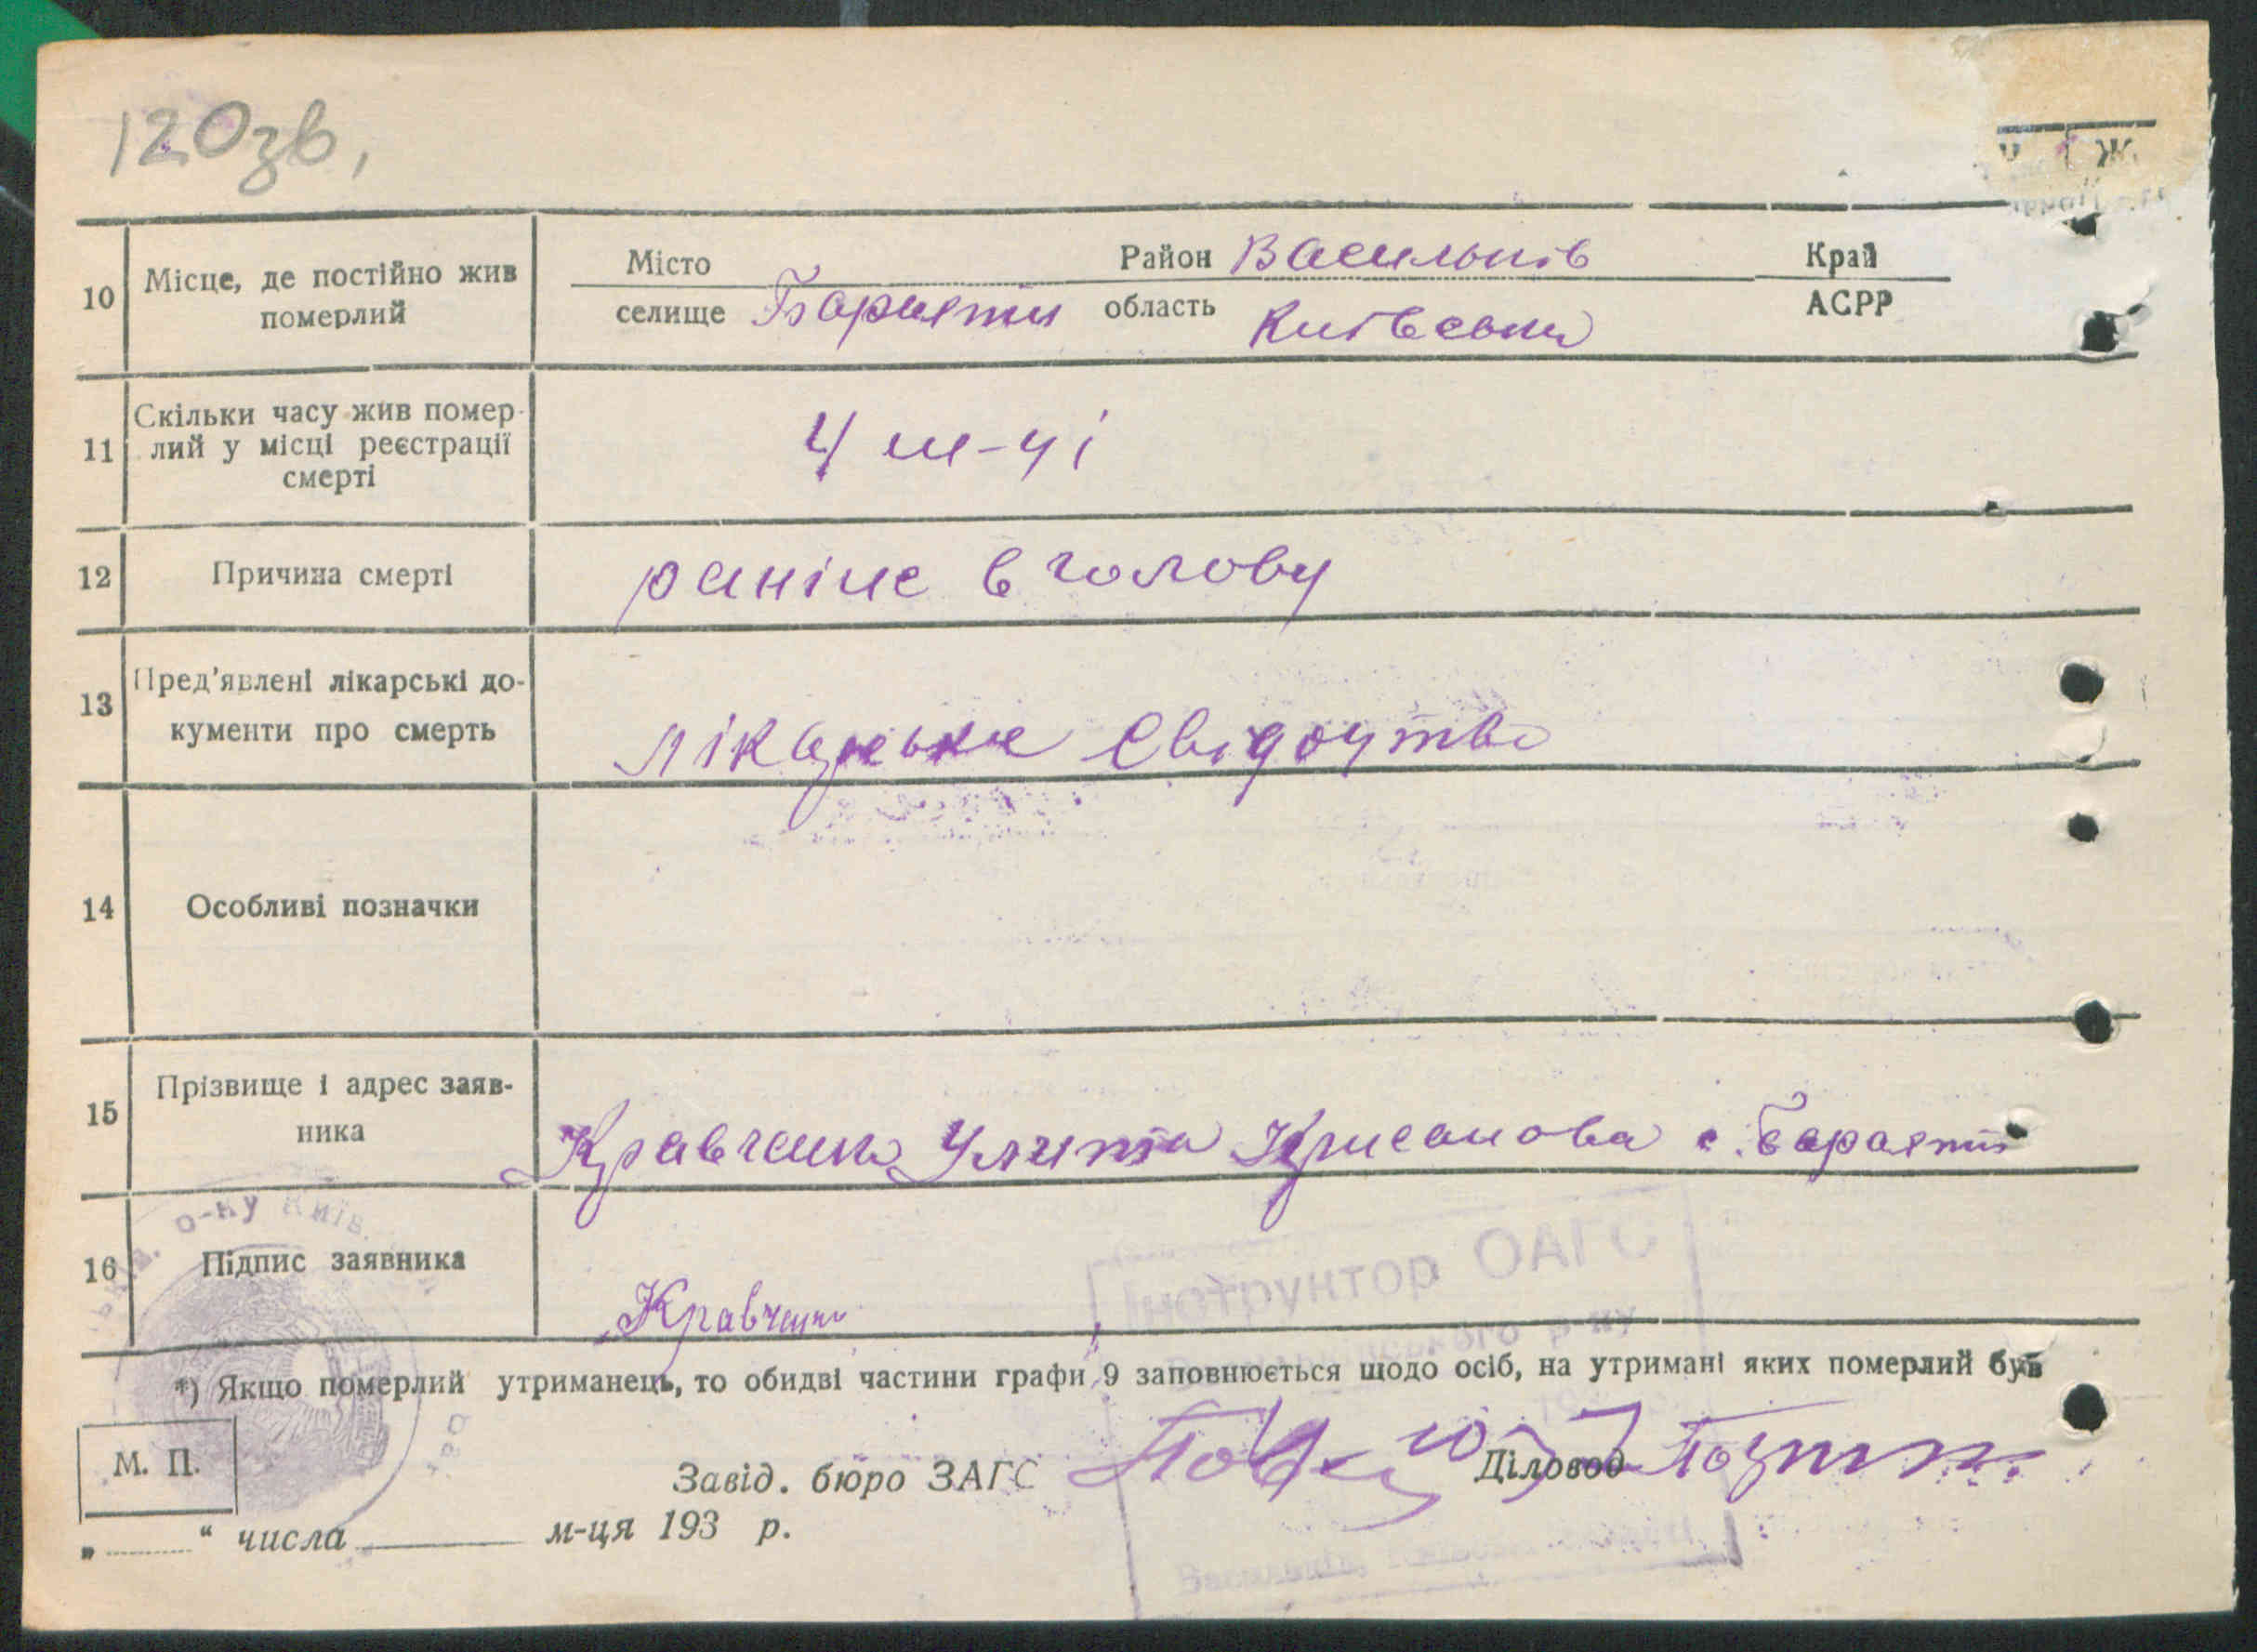 120зв,
ч Ж
10 Місце, де постійно жив померлий
Місто Район Васильків Край
селище Барахти область Київська АСРР
11 Скільки часу жив помер-
лий у місці реєстрації
смерті
4 м-ці
12 Причина смерті раніне в голову
13 Пред'явлені лікарські до-
кументи про смерть
лікарське свідоцтво
14 Особливі позначки
15 Прізвище і адрес заяв-
ника
Кравченко Улита Крисанова с. Барахти
о-ну Київ.
16 Підпис заявника
Кравченко
Інструктор ОАГС
р-ну
*) Якщо померлий утриманець, то обидві частини графи 9 заповнюється щодо осіб, на утримані яких померлий був
М. П.
Завід. бюро ЗАГС Діловод
„ “ числа м-ця 193 р.